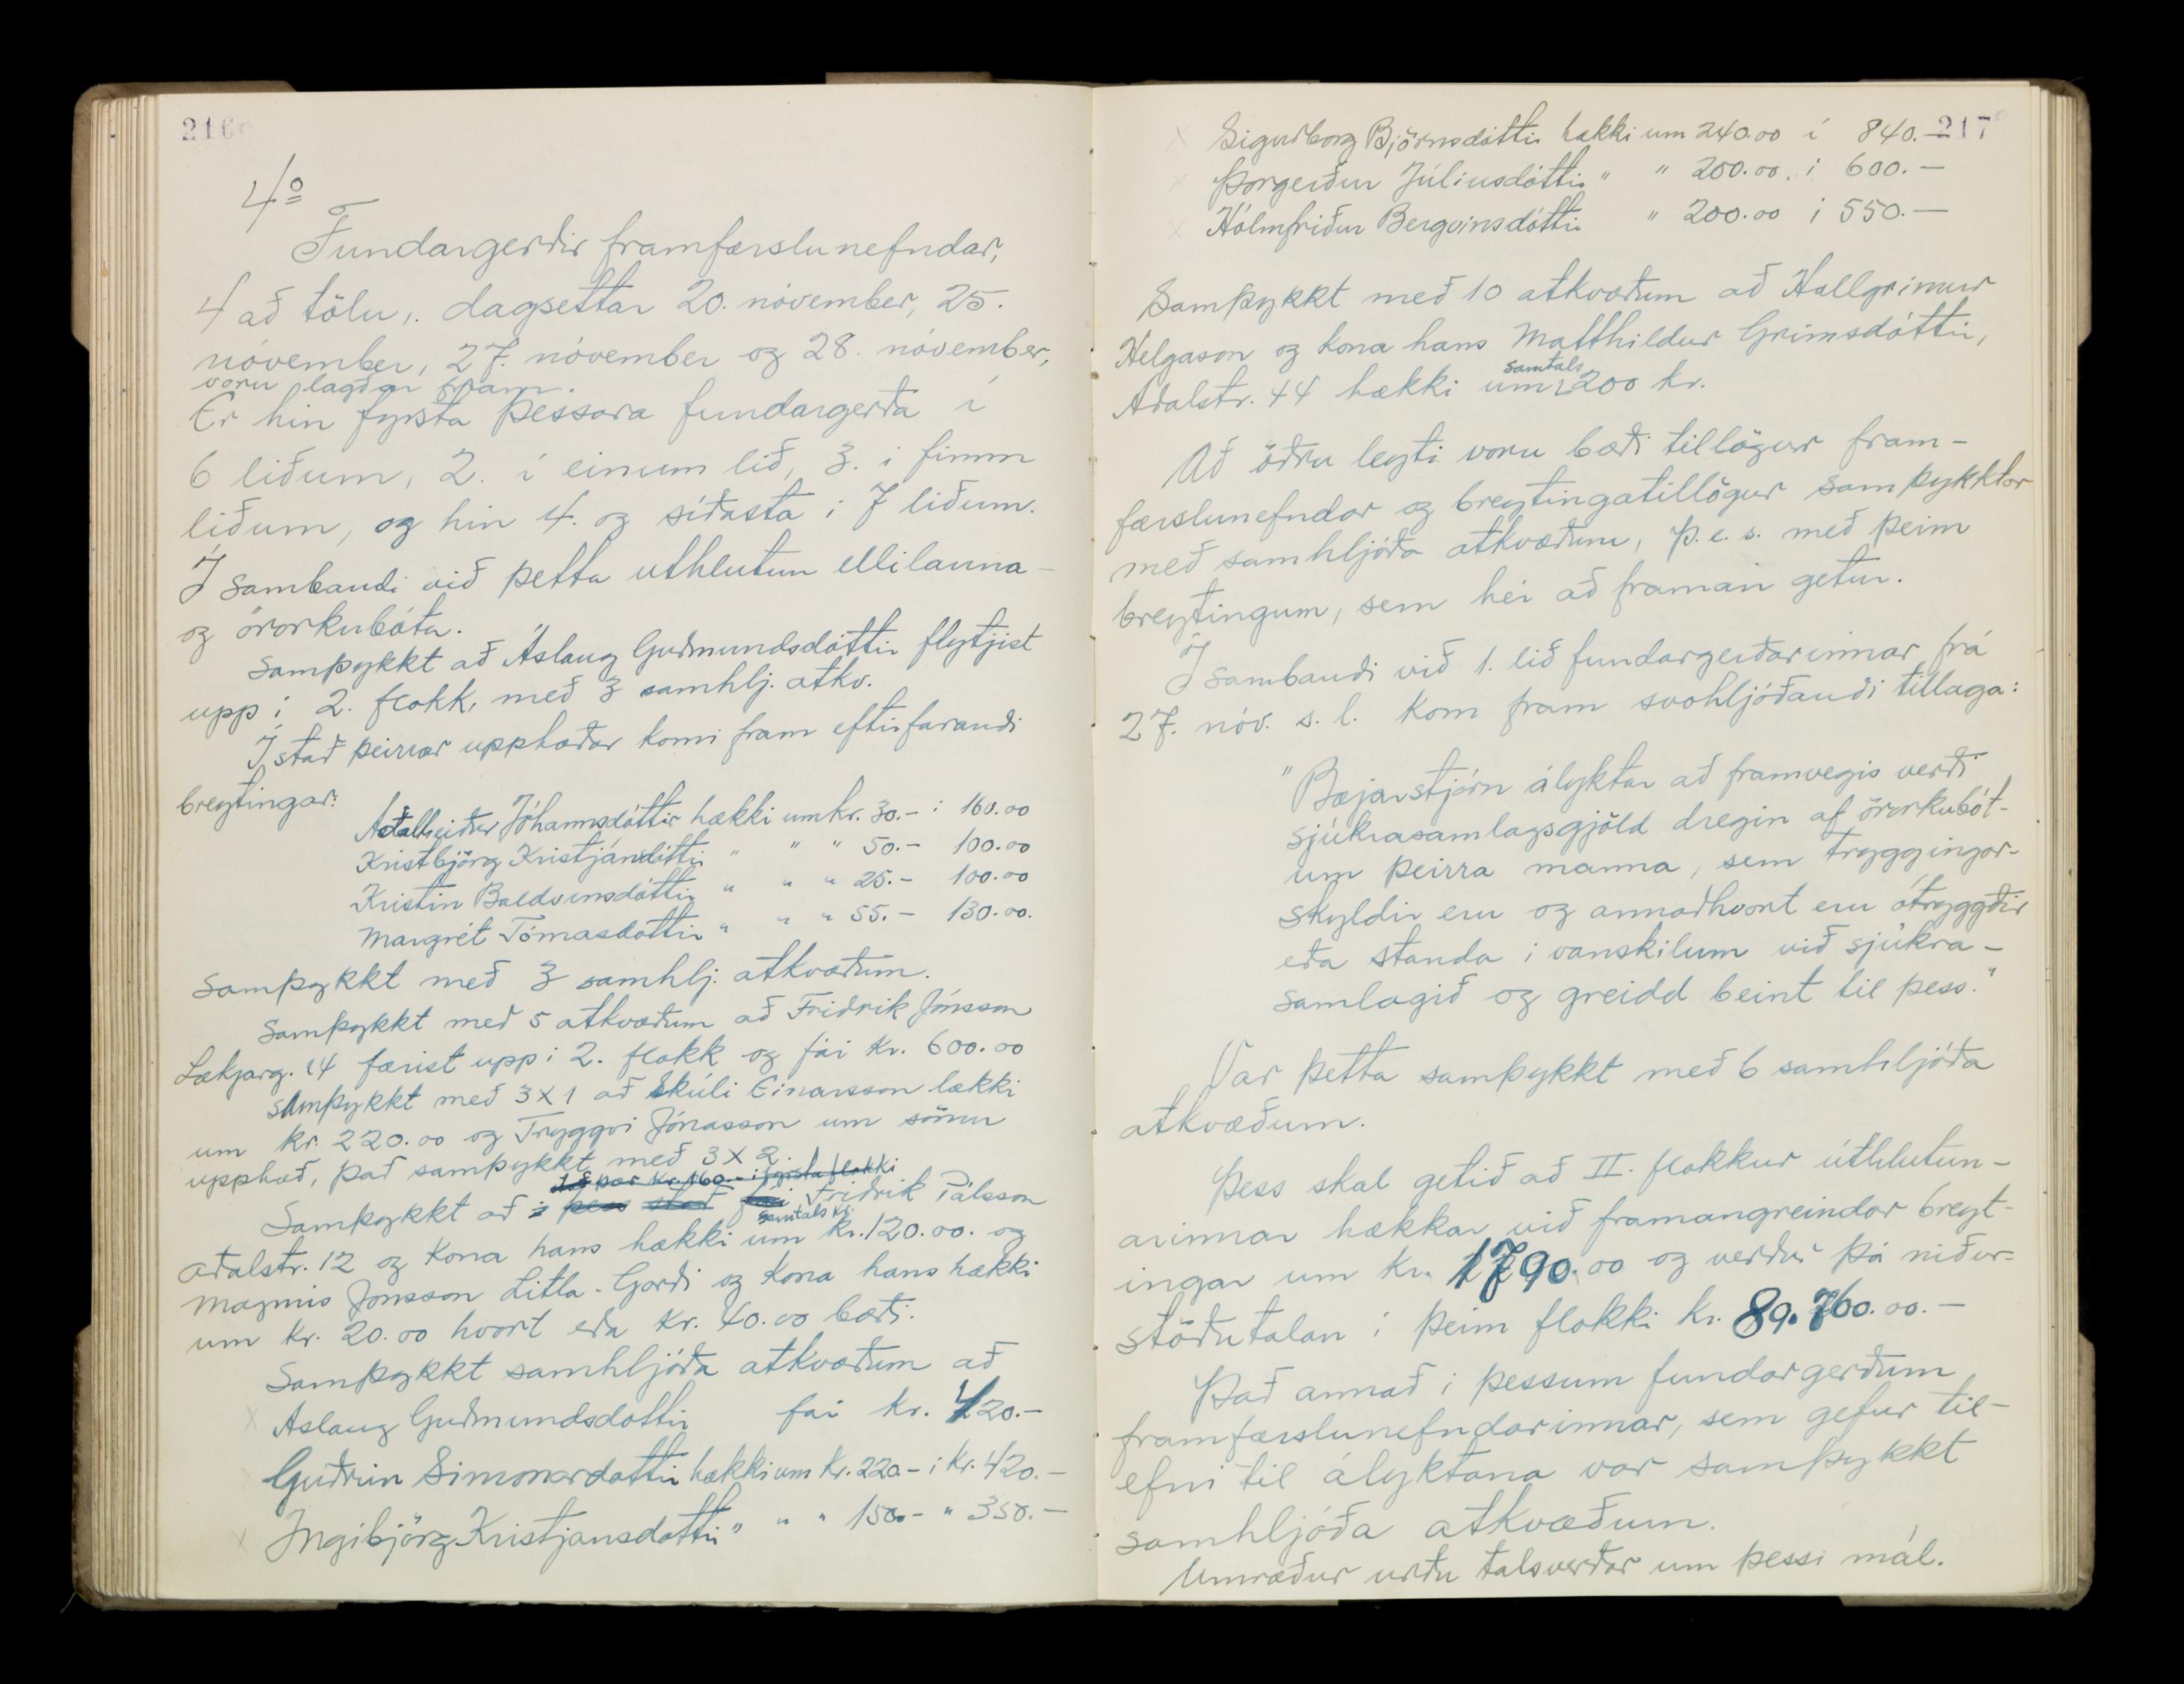 216
4º
Fundargerðir framfærslunefndar,
4 að tölu, dagsettar 20. nóvember, 25.
nóvember, 27. nóvember og 28. nóvember,
voru lagðar fram.
Er hin fyrsta þessara fundargerða í
6 liðum, 2. í einum lið, 3. í fimm
liðum, og hin 4. og síðasta í 7 liðum.
Í sambandi við þetta uthlutun ellilauna-
og örorkubóta.
Samþykkt að Áslaug Guðmundsdóttir flytjist
upp í 2. flokk, með 3 samhlj. atkv.
Í stað þeirrar upphæðar komi fram eftirfarandi
breytingar:
Aðalheiður Jóhannsdóttir hækki um kr. 30.- í 160.00
Kristbjörg Kristjánsdóttir " " " 50.- 100.00
Kristín Baldvinsdóttir " " " 25.- 100.00
Margrét Tómasdóttir " " " 55.- 130.00.
Samþykkt með 3 samhlj. atkvæðum.
Samþykkt með 5 atkvæðum að Friðrik Jónsson
Lækjarg. 14 færist upp í 2. flokk og fái kr. 600.00
Samþykkt með 3 X 1 að Skúli Einarsson lækki
um kr. 220.00 og Tryggvi Jónasson um sömu
upphæð, það samþykkt með 3 X 2.
þar kr. 160.- í fyrsta flokki
Samþykkt að í þess stað fái Friðrik Pálsson
samtals kr.
Aðalstr. 12 og kona hans hækki um kr. 120.00. og
Magnús Jónsson Litla-Garði og kona hans hækki
um kr. 20.00 hvort eða kr. 40.00 bæði.
Samþykkt samhljóða atkvæðum að
x Aslaug Guðmundsdottir fái kr. 420.-
Guðrún Símonardottir hækki um kr. 220.- í kr. 420.-
x Ingibjörg Kristjansdottir " " " 150.- " 350.-
217
x Sigurborg Björnsdóttir hækki um 240.00 í 840.-
x Þorgerður Júlíusdóttir " " 200.00 í 600.-
x Hólmfríður Bergvinsdóttir " 200.00 í 550.-
Samþykkt með 10 atkvæðum að Hallgrímur
Helgason og kona hans Matthildur Grímsdóttir,
samtals
Aðalstr. 44 hækki um 200 kr.
Að öðru leyti voru bæði tillögur fram-
færslunefndar og breytingatillögur samþykktar
með samhljóða atkvæðum, þ.e.s. með þeim
breytingum, sem hér að framan getur.
Í sambandi við 1. lið fundargerðarinnar frá
27. nóv. s.l. kom fram svohljóðandi tillaga:
"Bæjarstjórn ályktar að framvegis verði
sjúkrasamlagsgjöld dregin af örorkubót-
um þeirra manna, sem tryggingar-
skyldir eru og annaðhvort eru ótryggðir
eða standa í vanskilum við sjúkra-
samlagið og greidd beint til þess."
Var þetta samþykkt með 6 samhljóða
atkvæðum.
Þess skal getið að II. flokkur úthlutun-
arinnar hækkar við framangreindar breyt-
ingar um kr. 1790.00 og verður þá niður-
stöðutalan í þeim flokki kr. 89.760.00.-
Það annað í þessum fundargerðum
framfærslunefndarinnar, sem gefur til-
efni til ályktana var samþykkt
samhljóða atkvæðum.
Umræður urðu talsverðar um þessi mál.